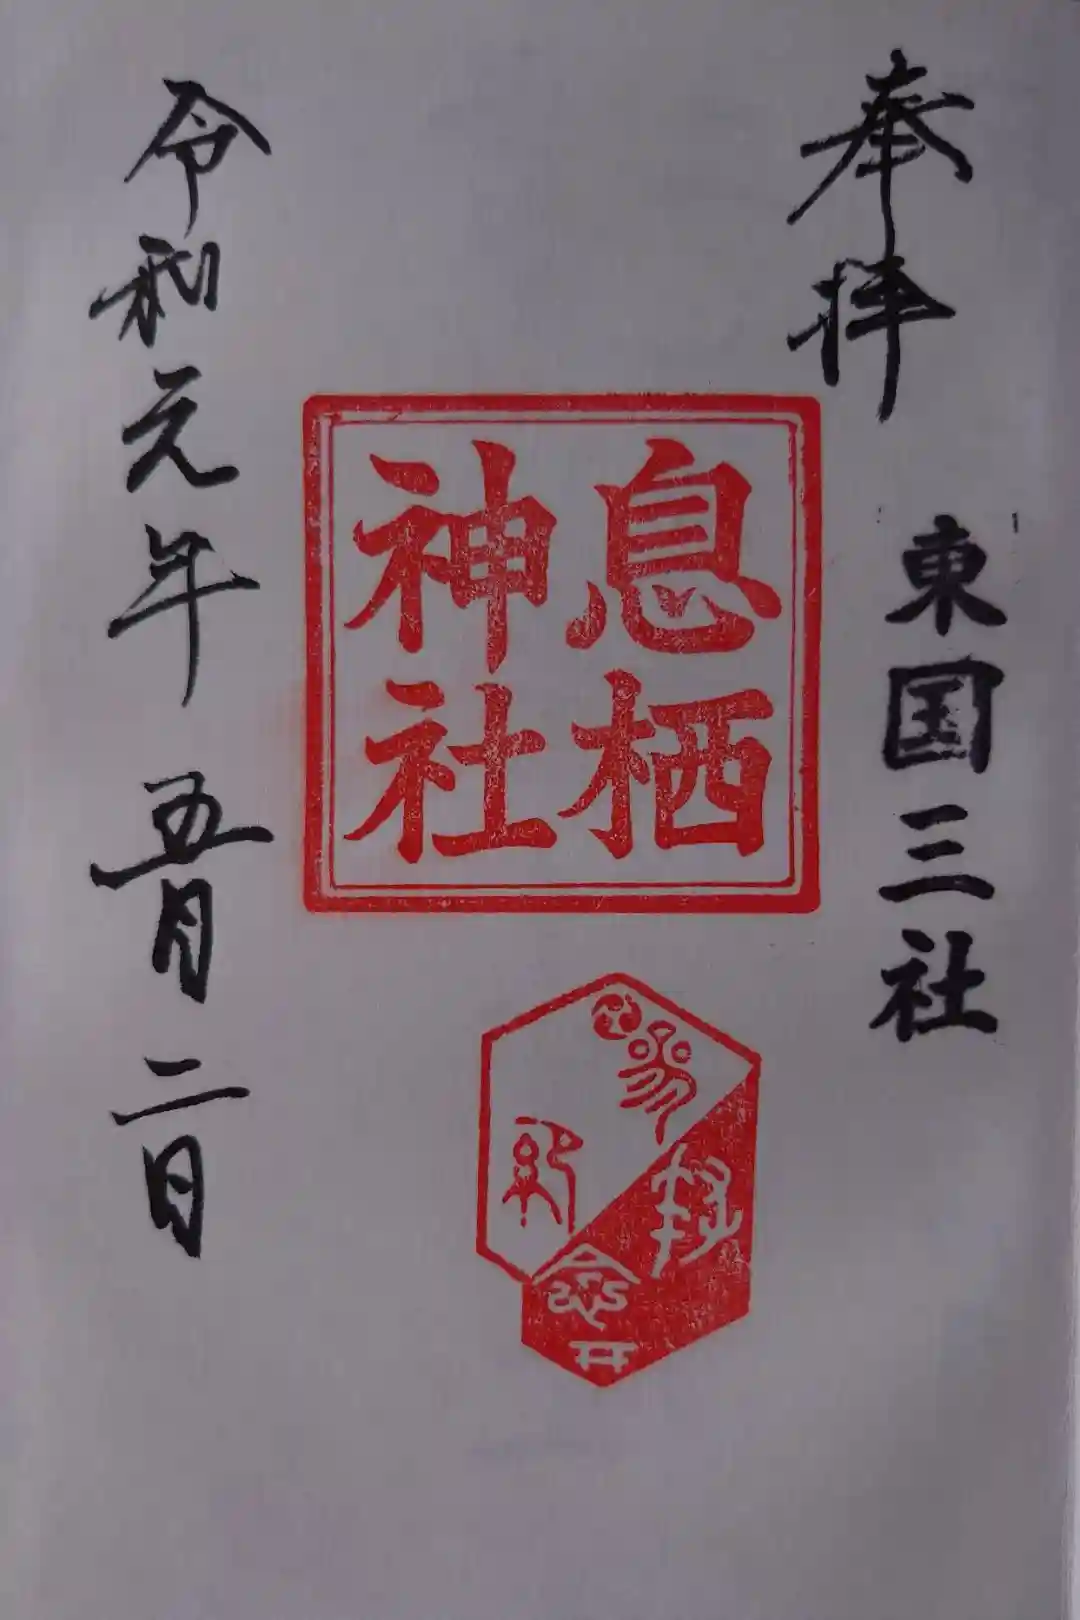 奉拝
東国三社
息栖
神社
参拝
記念
令和元年五月二日